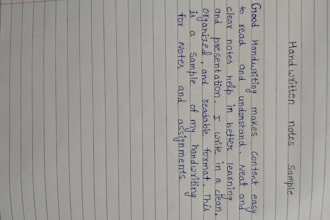 Hand written Notes Sample
Good Handwriting makes Content easy
to read and understand. Neat and
clear notes help in better learning
and presentation. I write in a clean,
organized, and readable format. This
is a Sample of my handwriting
for Notes and assignments.